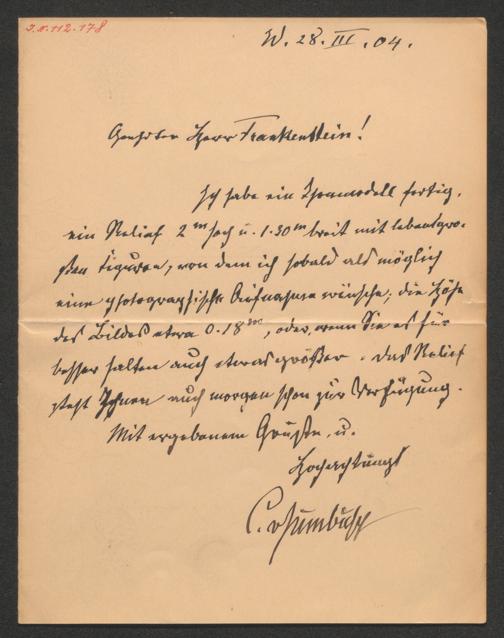 J.N. 112.178
W. 28. III. 04.
Geehrter Herr Frankenstein!
Ich habe ein Thonmodell fertig,
ein Relief 2 m hoch u. 1·30 m breit mit lebensgro-
ßen Figuren, von dem ich sobald als möglich
eine photographische Aufnahme wünsche; die Höhe
des Bildes etwa 0·18 m, oder, wenn Sie es für
besser halten auch etwas größer. Das Relief
steht Ihnen auch morgen schon zur Verfügung.
Mit ergebenem Gruße, u.
Hochachtung
C. v Zumbusch